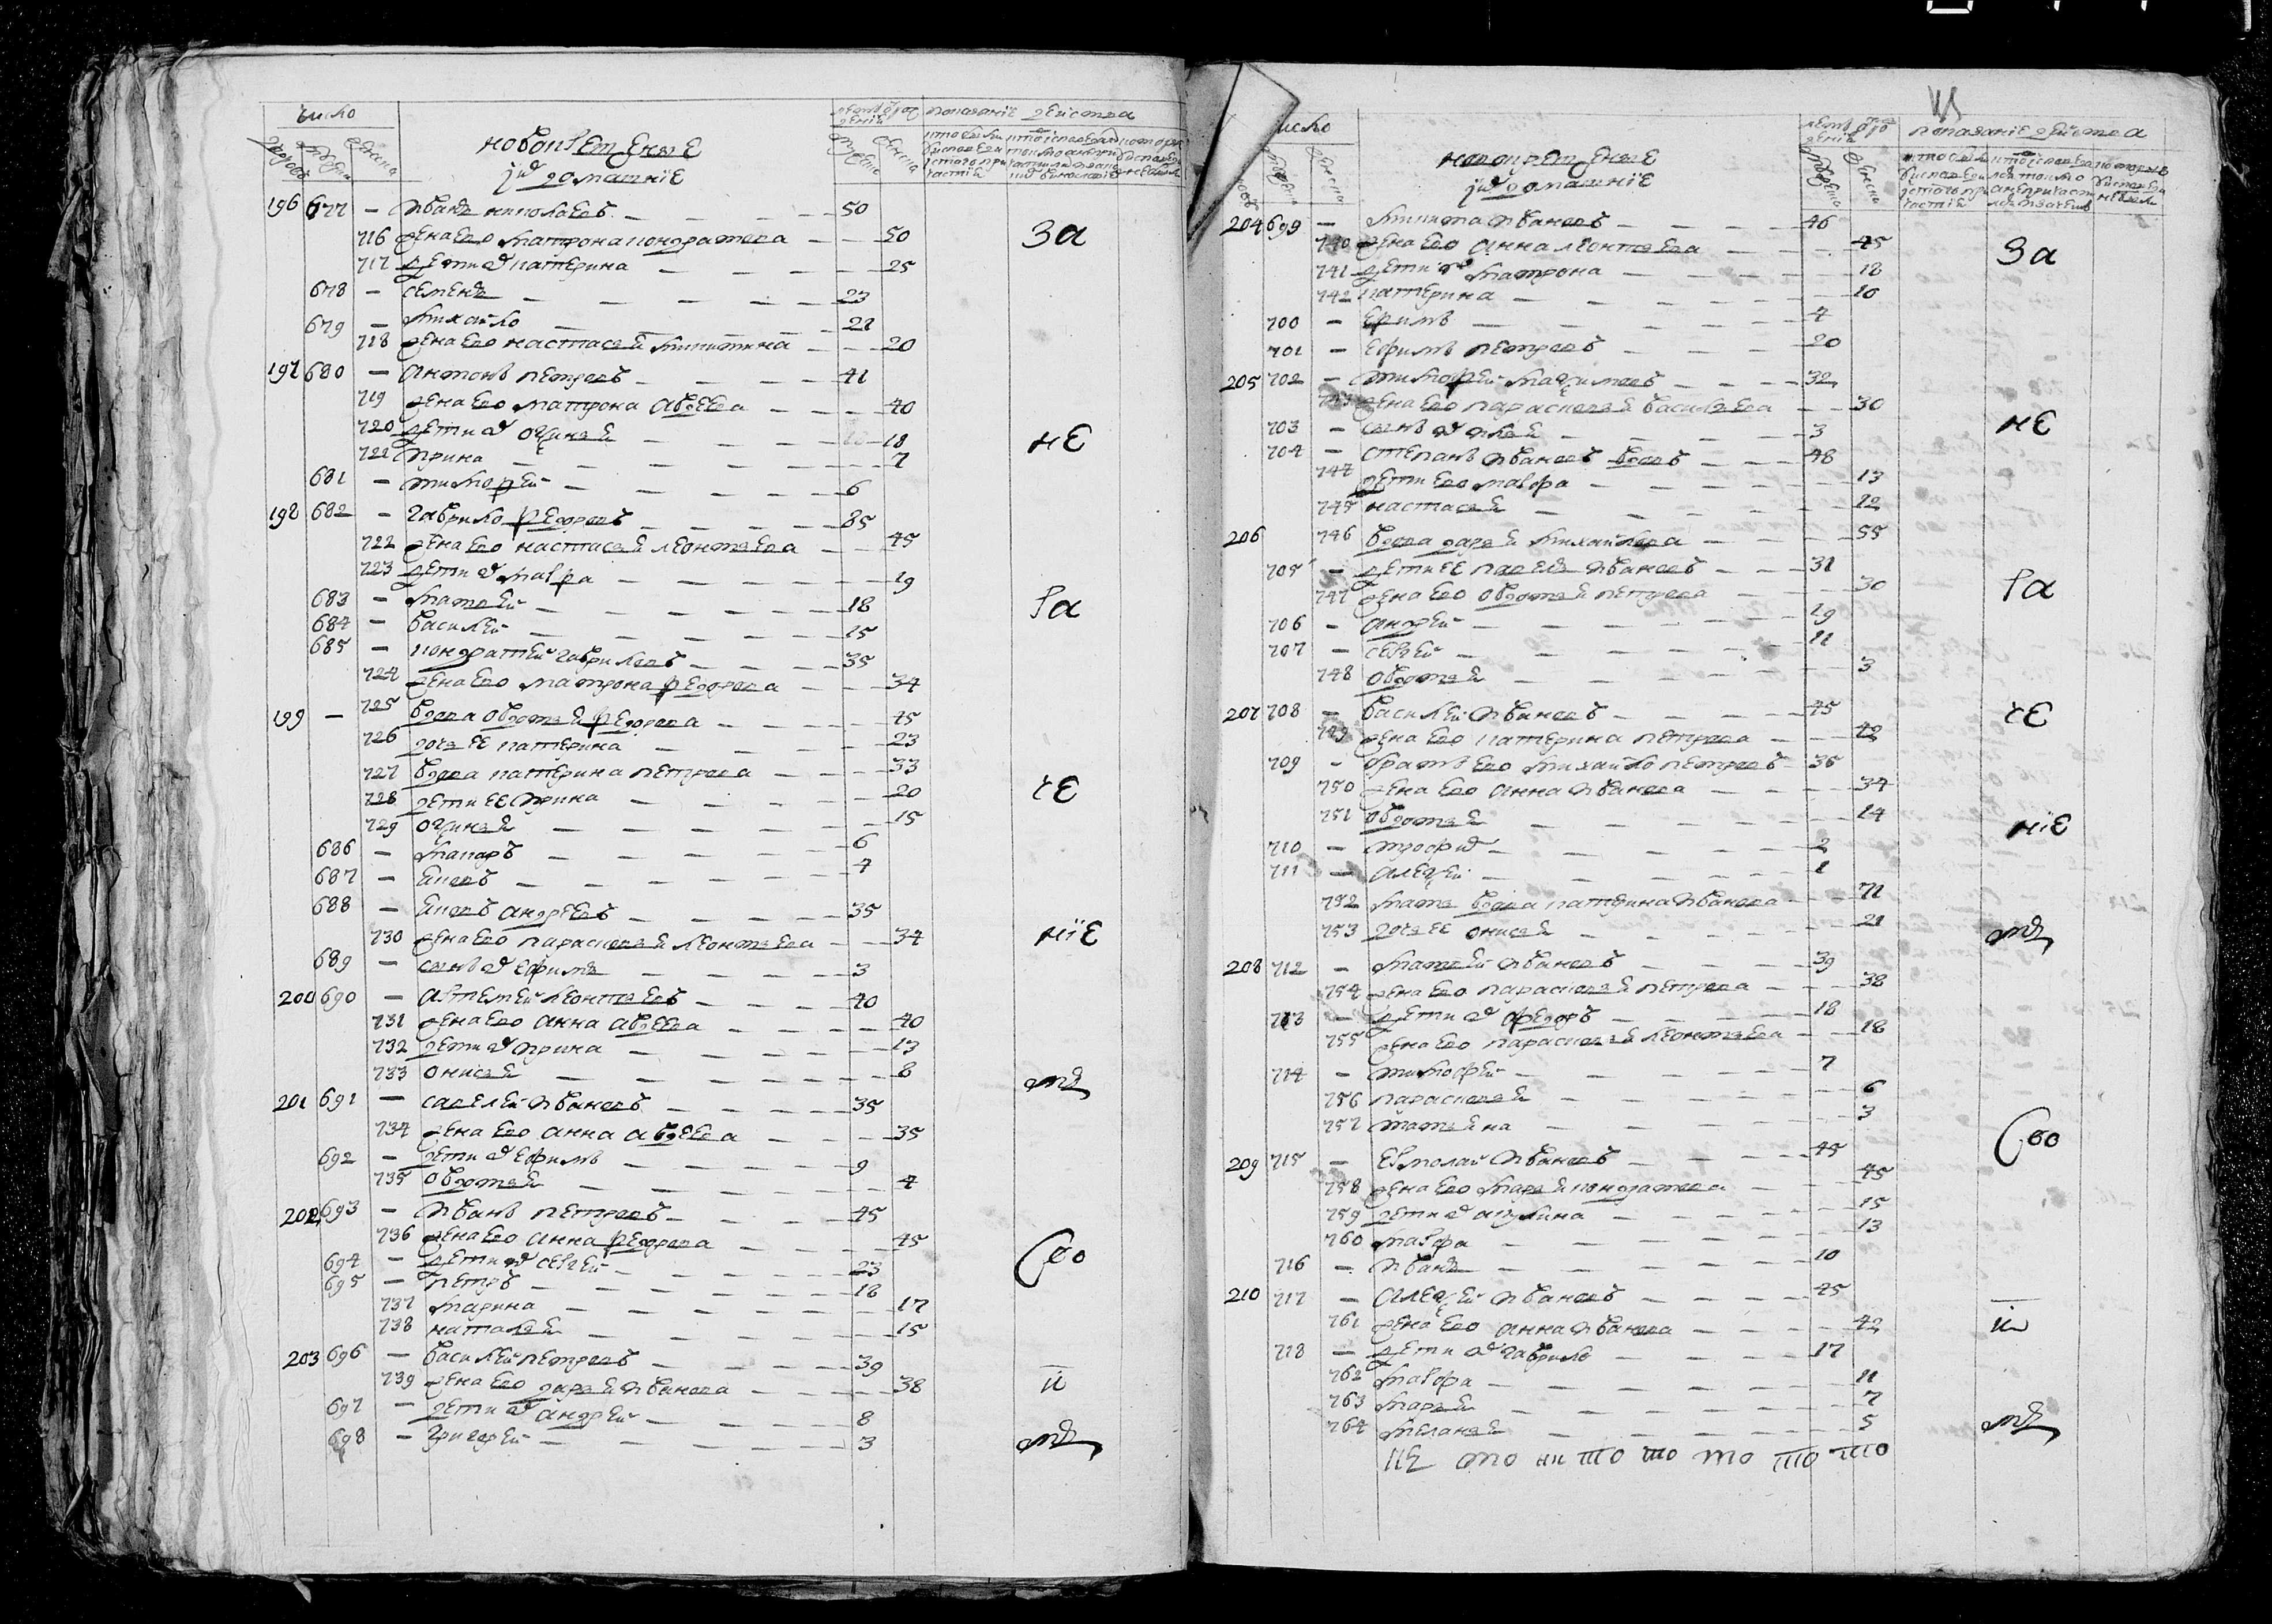 число
дворовъ мужеска женска
новокрещеные
и их домашние
лета от рождения
мужеска женска
показание действа
196 677 – Иванъ николаевъ 50
716 жена ево матрона кондратева 50
717 дети их катерина 25
678 – семенъ 23
679 – михайло 21
718 жена ево настасья никитина 20
197 680 – антонъ петровъ 41
719 жена ево матрона авдеева 40
720 дети их оксинья 18
721 Ирина 7
681 – тимофей 6
198 682 – гаврило федоровъ 85
722 жена ево настасья леонтьева 45
723 дети их мавра 19
683 – матвей 18
684 – василей 15
685 – кондратей гавриловъ 35
724 жена ево матрона федорова 34
199 – 725 вдова овдотья федорова 45
726 дочь ее катерина 23
727 вдова катерина петрова 33
728 дети ее Ирина 20
729 оксинья 15
686 – макаръ 6
687 – яковъ 4
688 – яковъ андреевъ 35
730 жена ево парасковья леонтьева 34
689 – сынъ их ефимъ 3
200 690 – артемей леонтьевъ 40
731 жена ево анна авдеева 40
732 дети их Ирина 13
733 онисья 8
201 691 – савелей Ивановъ 35
734 жена ево анна авдеева 35
692 – дети их ефимъ 9
735 овдотья 4
202 693 – Иванъ петровъ 45
736 жена ево анна федорова 45
694 – дети их сергей 23
695 – петръ 18
737 марина 17
738 наталья 15
203 696 – василей петровъ 39
739 жена ево дарья Иванова 38
697 – дети их андрей 8
698 – григорей 3
за
не
ра
че
ние
тъ
сво
и
тъ
число
новокрещеные
и их домашние
лета от рождения
мужеска женска
показание действа
204 699 – никита Ивановъ 46
740 жена ево анна леонтьева 45
741 дети их матрона 18
742 катерина 10
700 – ефимъ 4
701 – ефимъ петровъ 20
205 702 – тимофей максимовъ 32
743 жена ево парасковья васильева 30
703 – сынъ их Илья 3
704 – степанъ Ивановъ вдовъ 48
744 дети ево мавра 13
745 настасья 12
206 746 вдова дарья михайлова 55
705 – дети ее павелъ Ивановъ 31
747 жена ево овдотья петрова 30
706 – андрей 19
707 – сергей 11
748 овдотья 3
207 708 – василей Ивановъ 45
749 жена ево катерина петрова 42
709 – братъ ево михайло петровъ 35
750 жена ево анна Иванова 34
751 овдотья 14
710 – трофим 2
711 – алексей 1
752 мать вдова катерина Иванова 71
753 дочь ее онисья 21
208 712 – матвей Ивановъ 39
754 жена ево парасковья петрова 38
713 – дети их федоръ 18
755 жена ево парасковья леонтьева 18
714 – тимофей 7
756 парасковья 6
757 татьяна 3
209 715 – ермолай Ивановъ 45
758 жена ево марья кондратева 45
759 дети их акулина 15
760 мавра 13
716 – Иванъ 10
210 717 – алексей Ивановъ 45
761 жена ево анна Иванова 42
718 – дети их гаврило 17
762 мавра 11
763 марья 7
764 меланья 5
за
не
ра
че
ние
тъ
сво
и
тъ